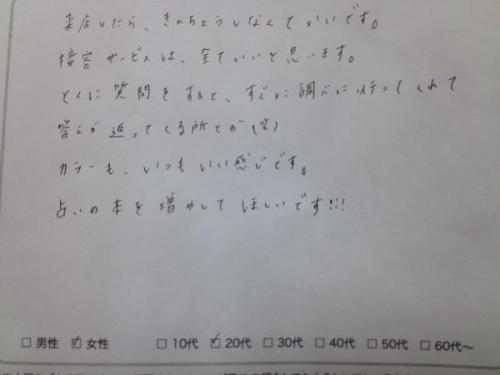 来店したら、きんちょうしなくていいです。
接客サービスは、全ていいと思います。
とくに質問をすると、すぐに調べに行ってくれて
答えが返ってくる所とか(笑)
カラーも、いつもいい感じです。
占いの本を増やしてほしいです!!!
□ 男性 ☑ 女性 □ 10代 ☑ 20代 □ 30代 □ 40代 □ 50代 □ 60代〜